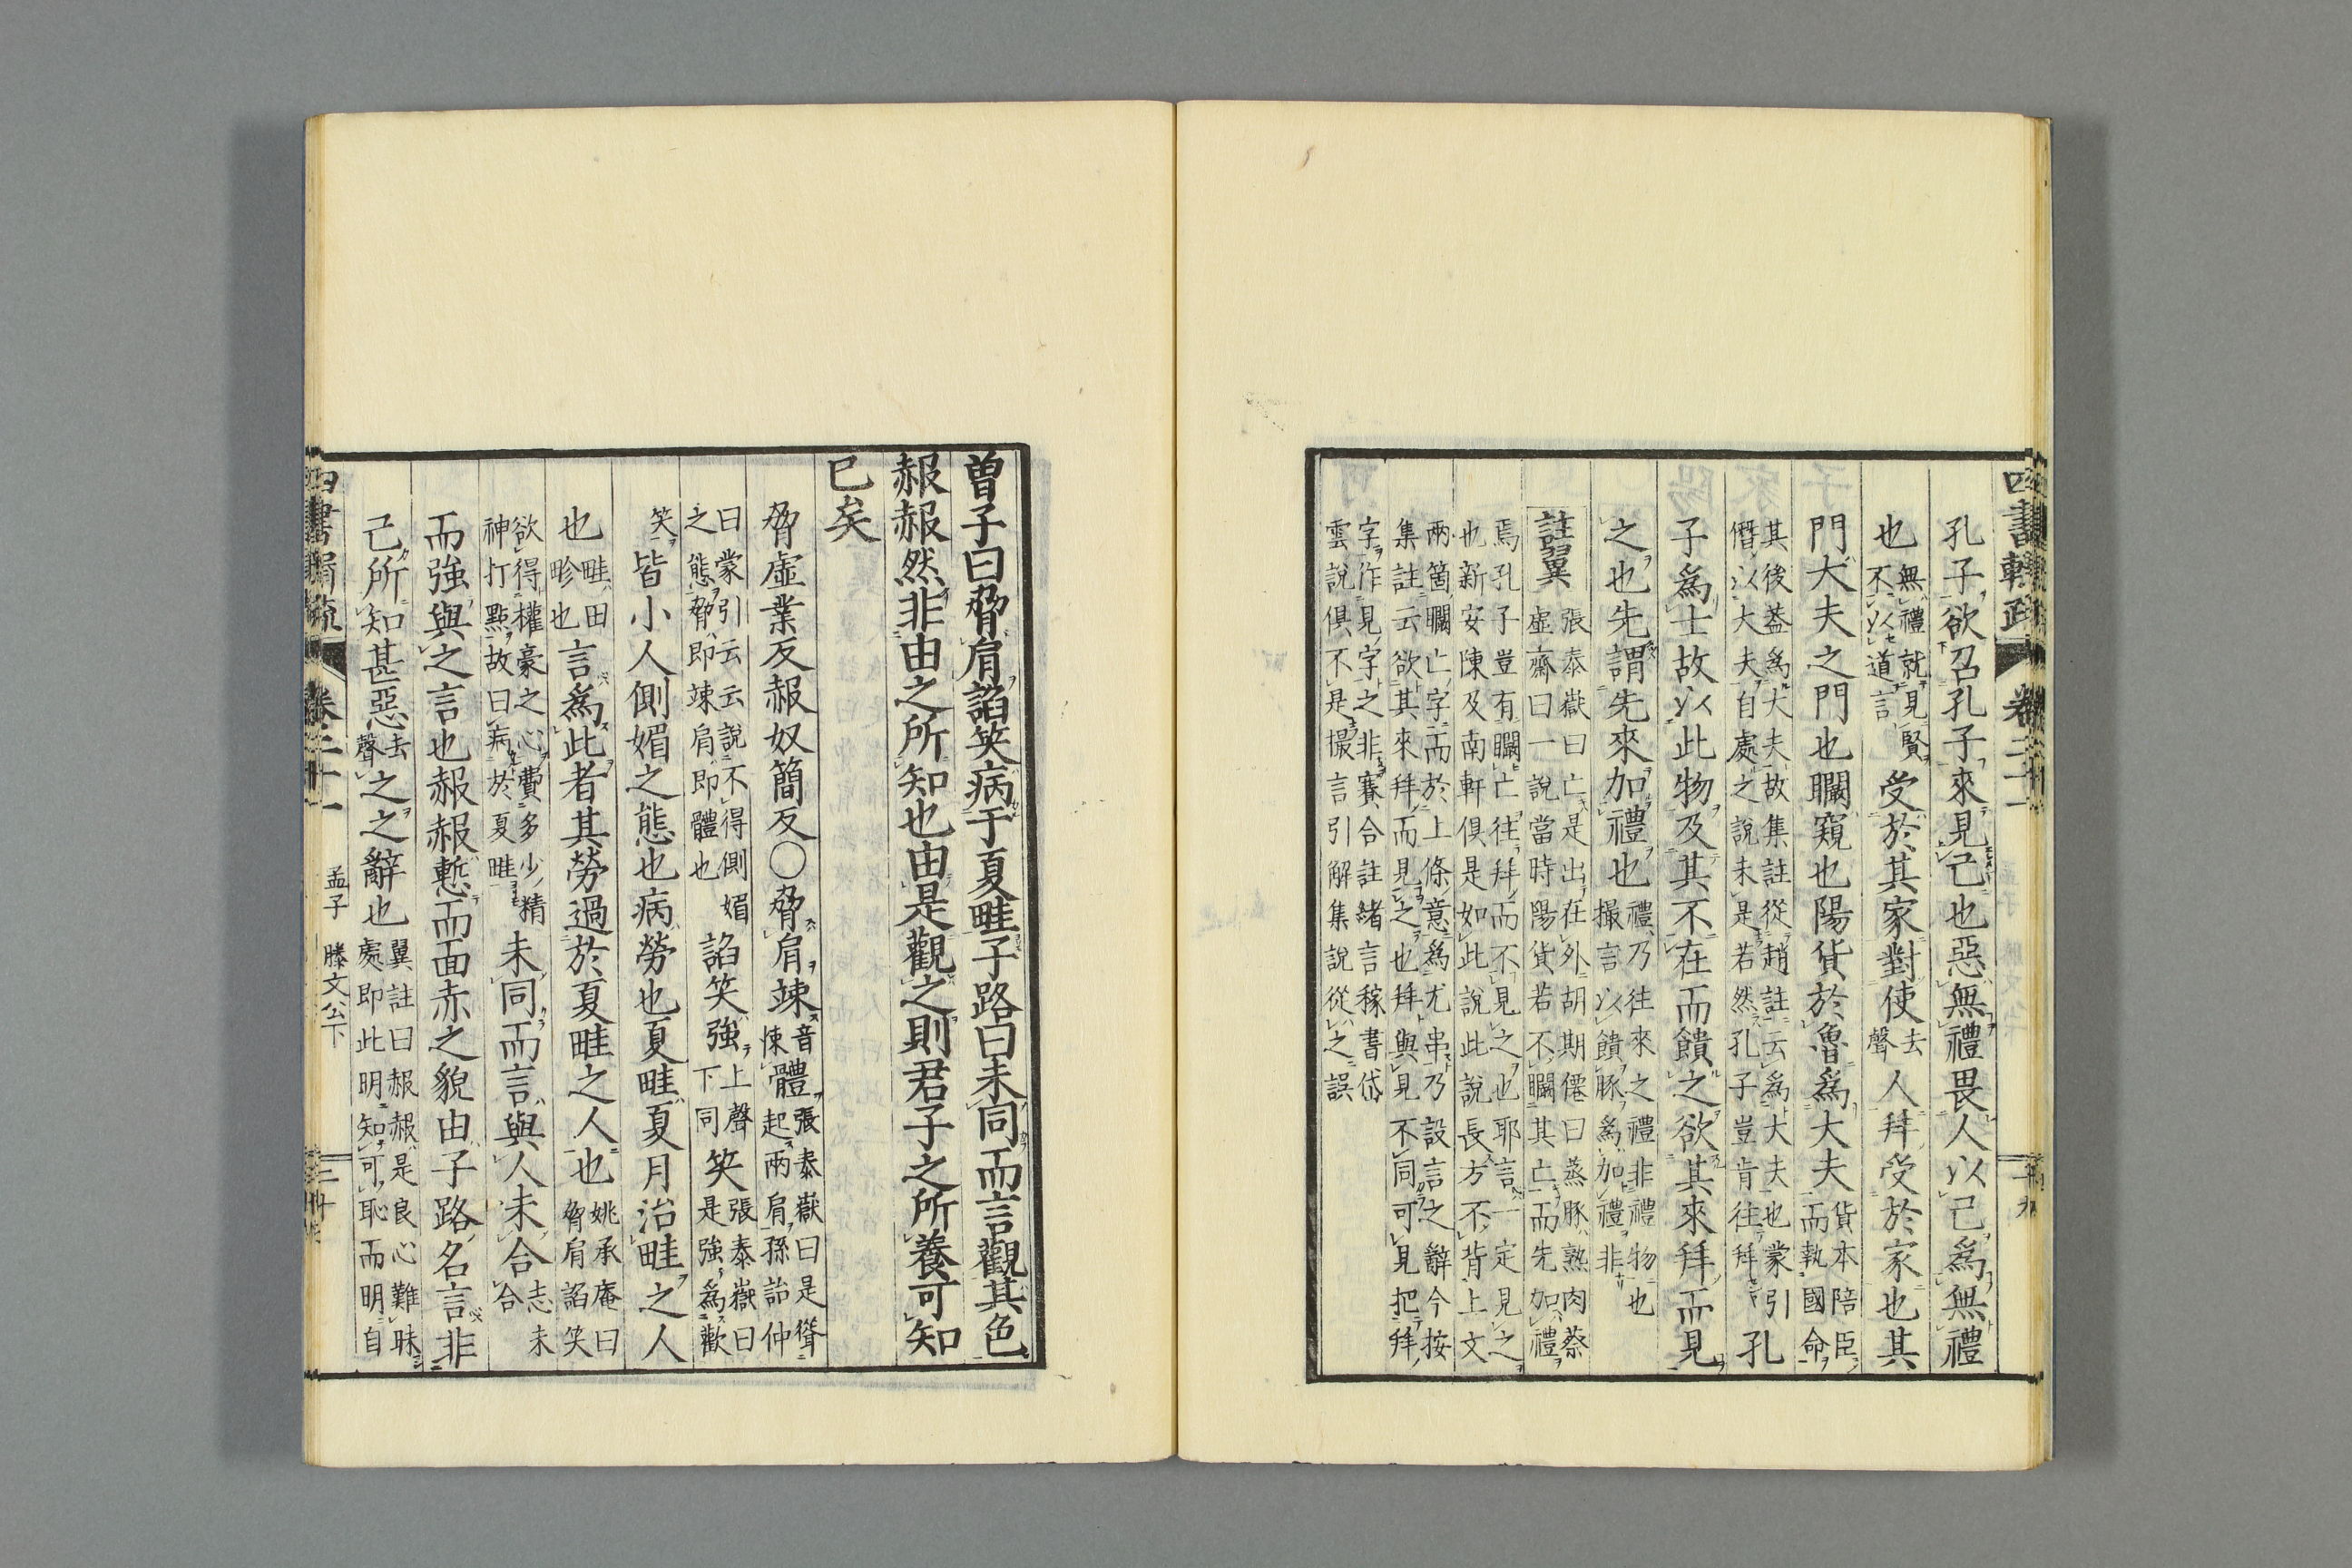 孔子欲召孔子來見己也惡無禮畏人以己爲無禮
也無禮就見賢不以道言受於其家對使去聲人拜受於家也其
門大夫之門也矙窺也陽貨於魯爲大夫貨本陪臣而執國命
其後葢爲大夫故集註從趙註云爲大夫也蒙引僭以大夫自處之說未是若然孔子豈肯往拜孔
子爲士故以此物及其不在而饋之欲其來拜而見
之也先謂先來加禮也禮乃往來之禮非禮物也撮言以饋豚爲加禮非
註翼張泰嶽曰亡是出在外胡期僊曰蒸豚熟肉蔡虛齋曰一說當時陽貨若不矙其亡而先加禮
焉孔子豈有矙亡往拜而不見之也耶言一定見之也新安陳及南軒俱是如此說此說長方不背上文
兩箇矙亡字而於上條意爲尤串乃設言之辭今按集註云欲其來拜而見之也拜與見不同可見把拜
字作見字之非賽合註緒言稼書岱雲說俱不是撮言引解集說從之誤
四書輯疏 卷二十一 二十九
曾子曰脅肩諂笑病于夏畦子路曰未同而言觀其色
赧赧然非由之所知也由是觀之則君子之所養可知
已矣
脅虛業反赧奴簡反○脅肩竦音悚體張泰嶽曰是聳起兩肩孫詒仲
曰蒙引云云說不得側媚之態脅即竦肩即體也諂笑強上聲下同笑張泰嶽曰是強爲歡
笑皆小人側媚之態也病勞也夏畦夏月治畦之人
也畦田畛也言爲此者其勞過於夏畦之人也姚承庵曰脅肩諂笑
欲得權豪之心費多少精神打點故曰病於夏畦未同而言與人未合志未合
而強與之言也赧赧慙而面赤之貌由子路名言非
己所知甚惡去聲之之辭也翼註曰赧赧是良心難昧處即此明知可恥而明自
四書輯疏 卷二十一 孟子 滕文公下 三十